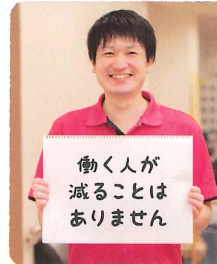 働く人が
減ることは
ありません